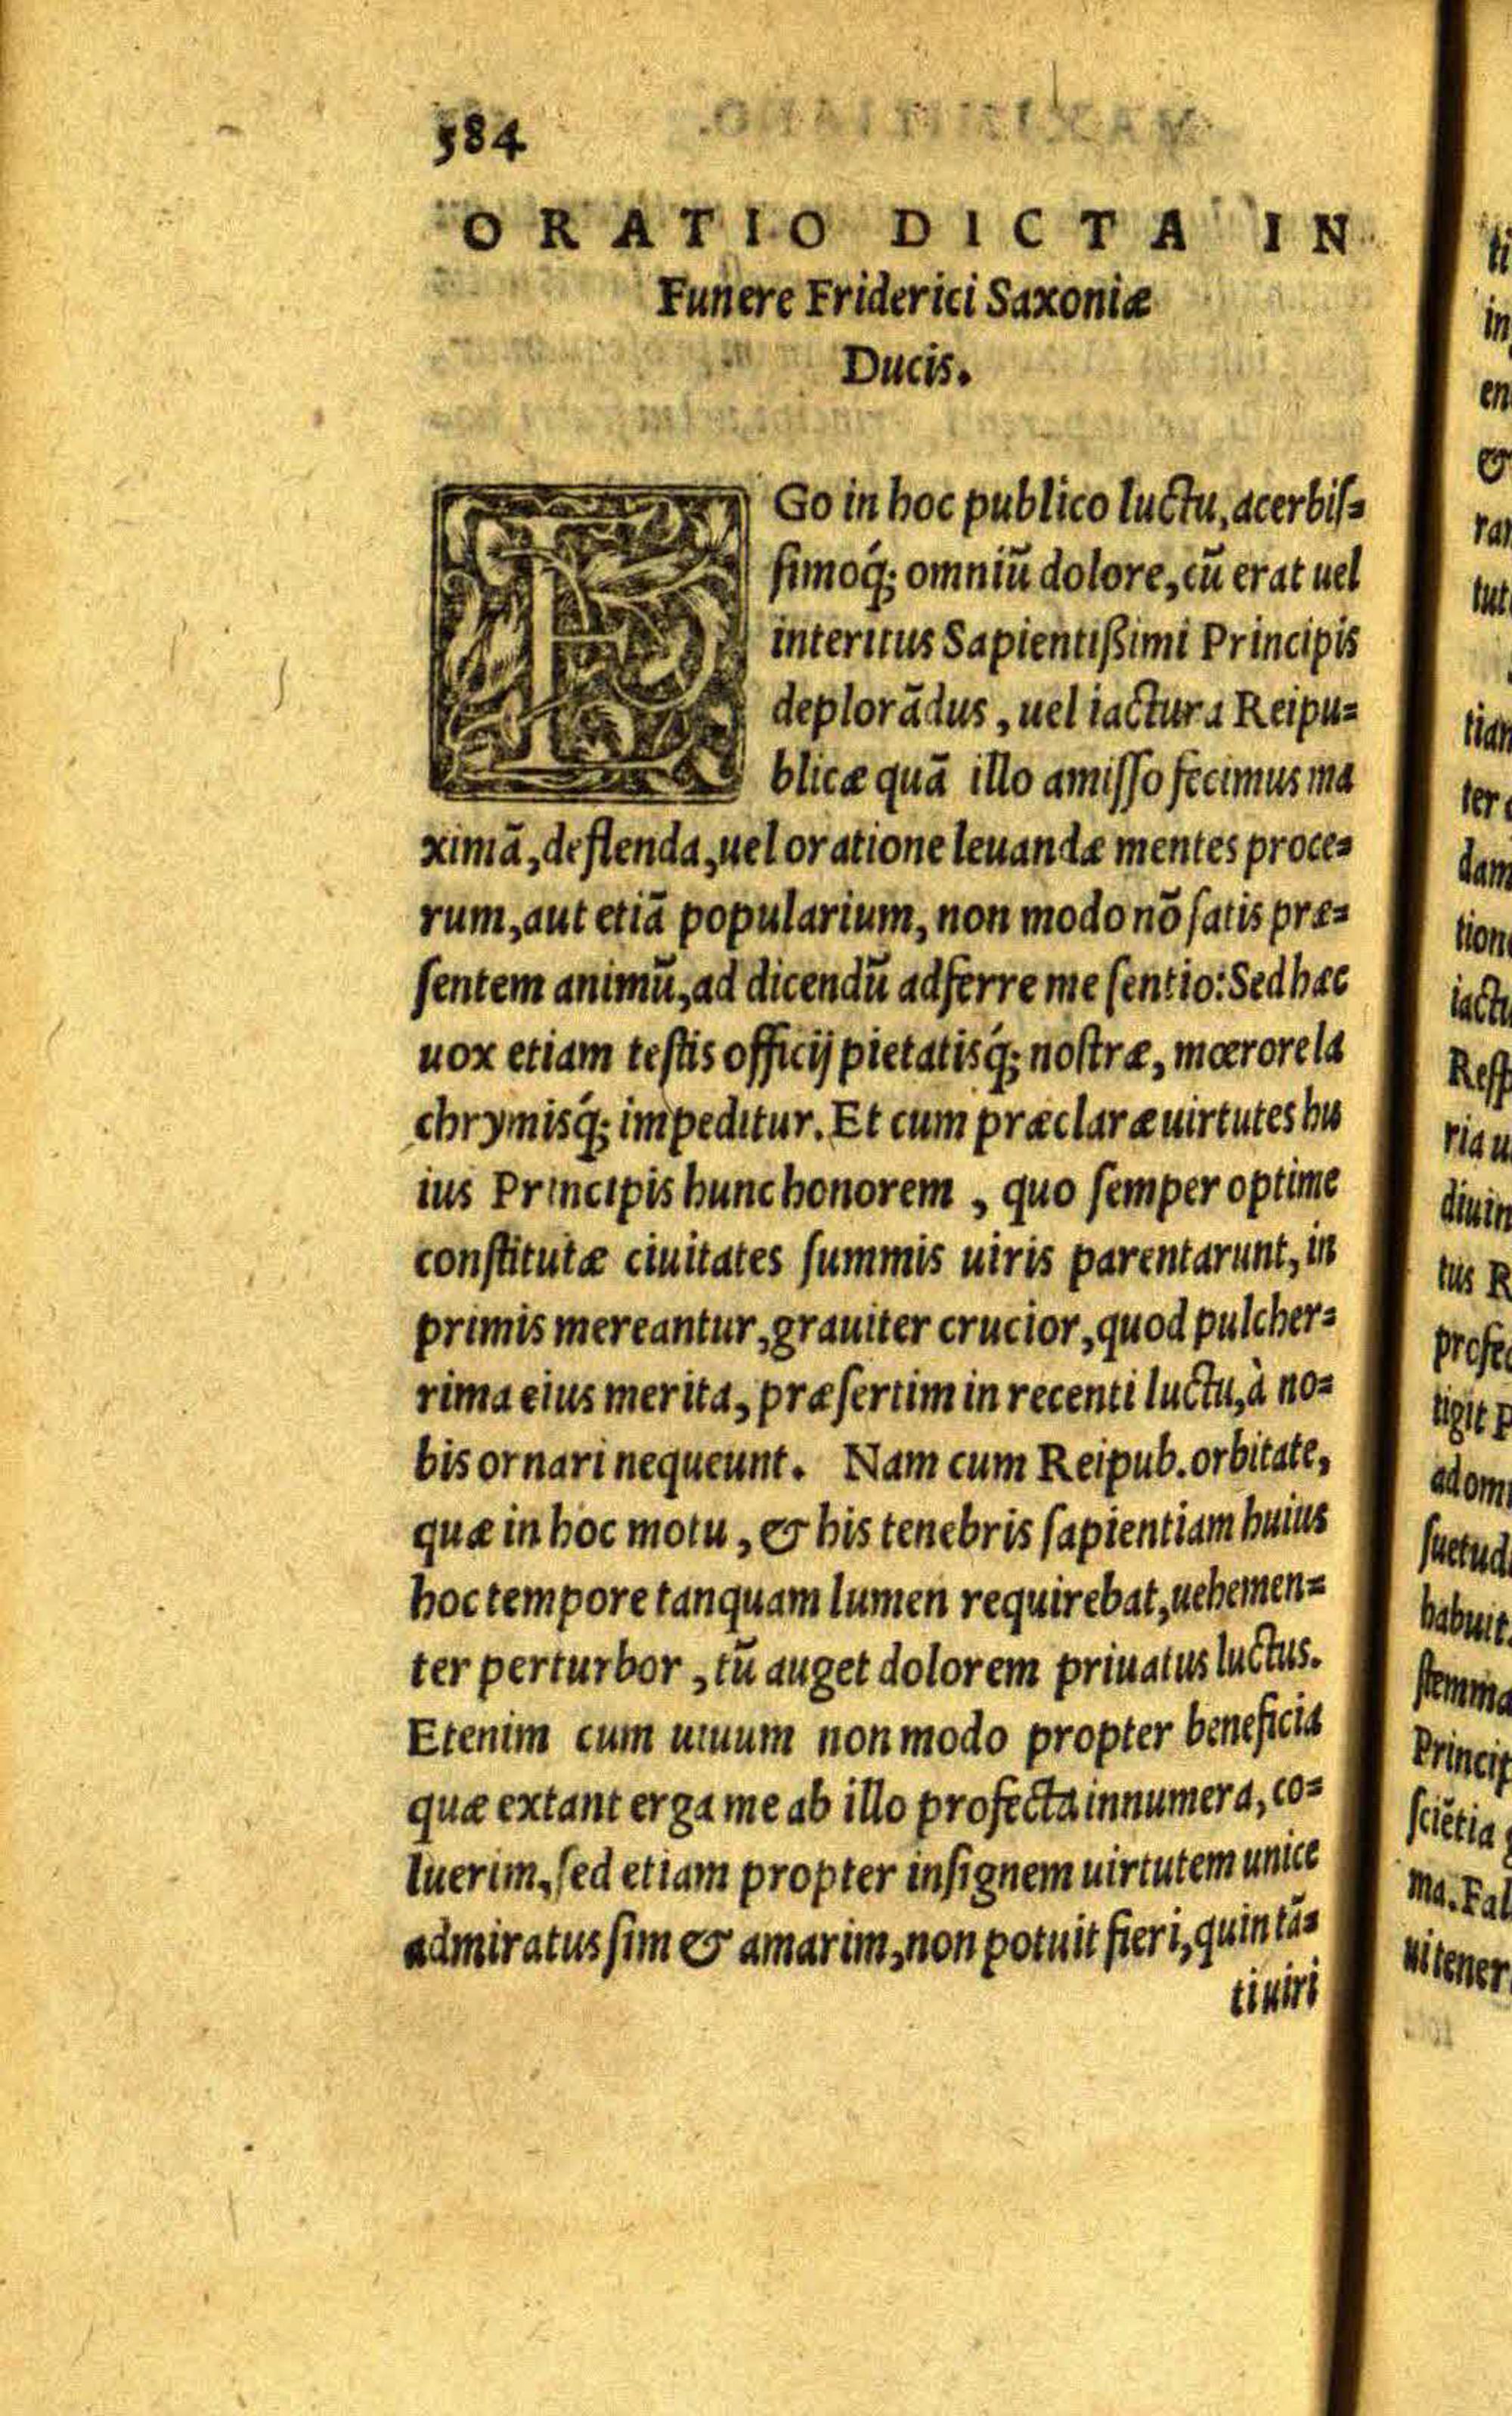 584
ORATIO DICTA IN
Funere Friderici Saxoniæ
Ducis.
EGo in hoc publico luctu, acerbiſ=
ſimoq́; omniū dolore, cū erat uel
interitus Sapientißimi Principis
deplorãdus, uel iactura Reipu=
blicæ quã illo amiſſo fecimus ma
ximã, deflenda, uel oratione leuandæ mentes proce=
rum, aut etiã popularium, non modo nõ ſatis præ=
ſentem animū, ad dicendū adferre me ſentio: Sed hæc
uox etiam teſtis officij pietatisq́; noſtræ, mœrore la
chrymisq́; impeditur. Et cum præclaræ uirtutes hu
ius Principis hunc honorem, quo ſemper optime
conſtitutæ ciuitates ſummis uiris parentarunt, in
primis mereantur, grauiter crucior, quod pulcher=
rima eius merita, præſertim in recenti luctu, à no=
bis ornari nequeunt. Nam cum Reipub. orbitate,
quæ in hoc motu, & his tenebris ſapientiam huius
hoc tempore tanquam lumen requirebat, uehemen=
ter perturbor, tū auget dolorem priuatus luctus.
Etenim cum uiuum non modo propter beneficia
quæ extant erga me ab illo profecta innumera, co=
luerim, ſed etiam propter inſignem uirtutem unice
admiratus ſim & amarim, non potuit fieri, quin tã=
ti uiri